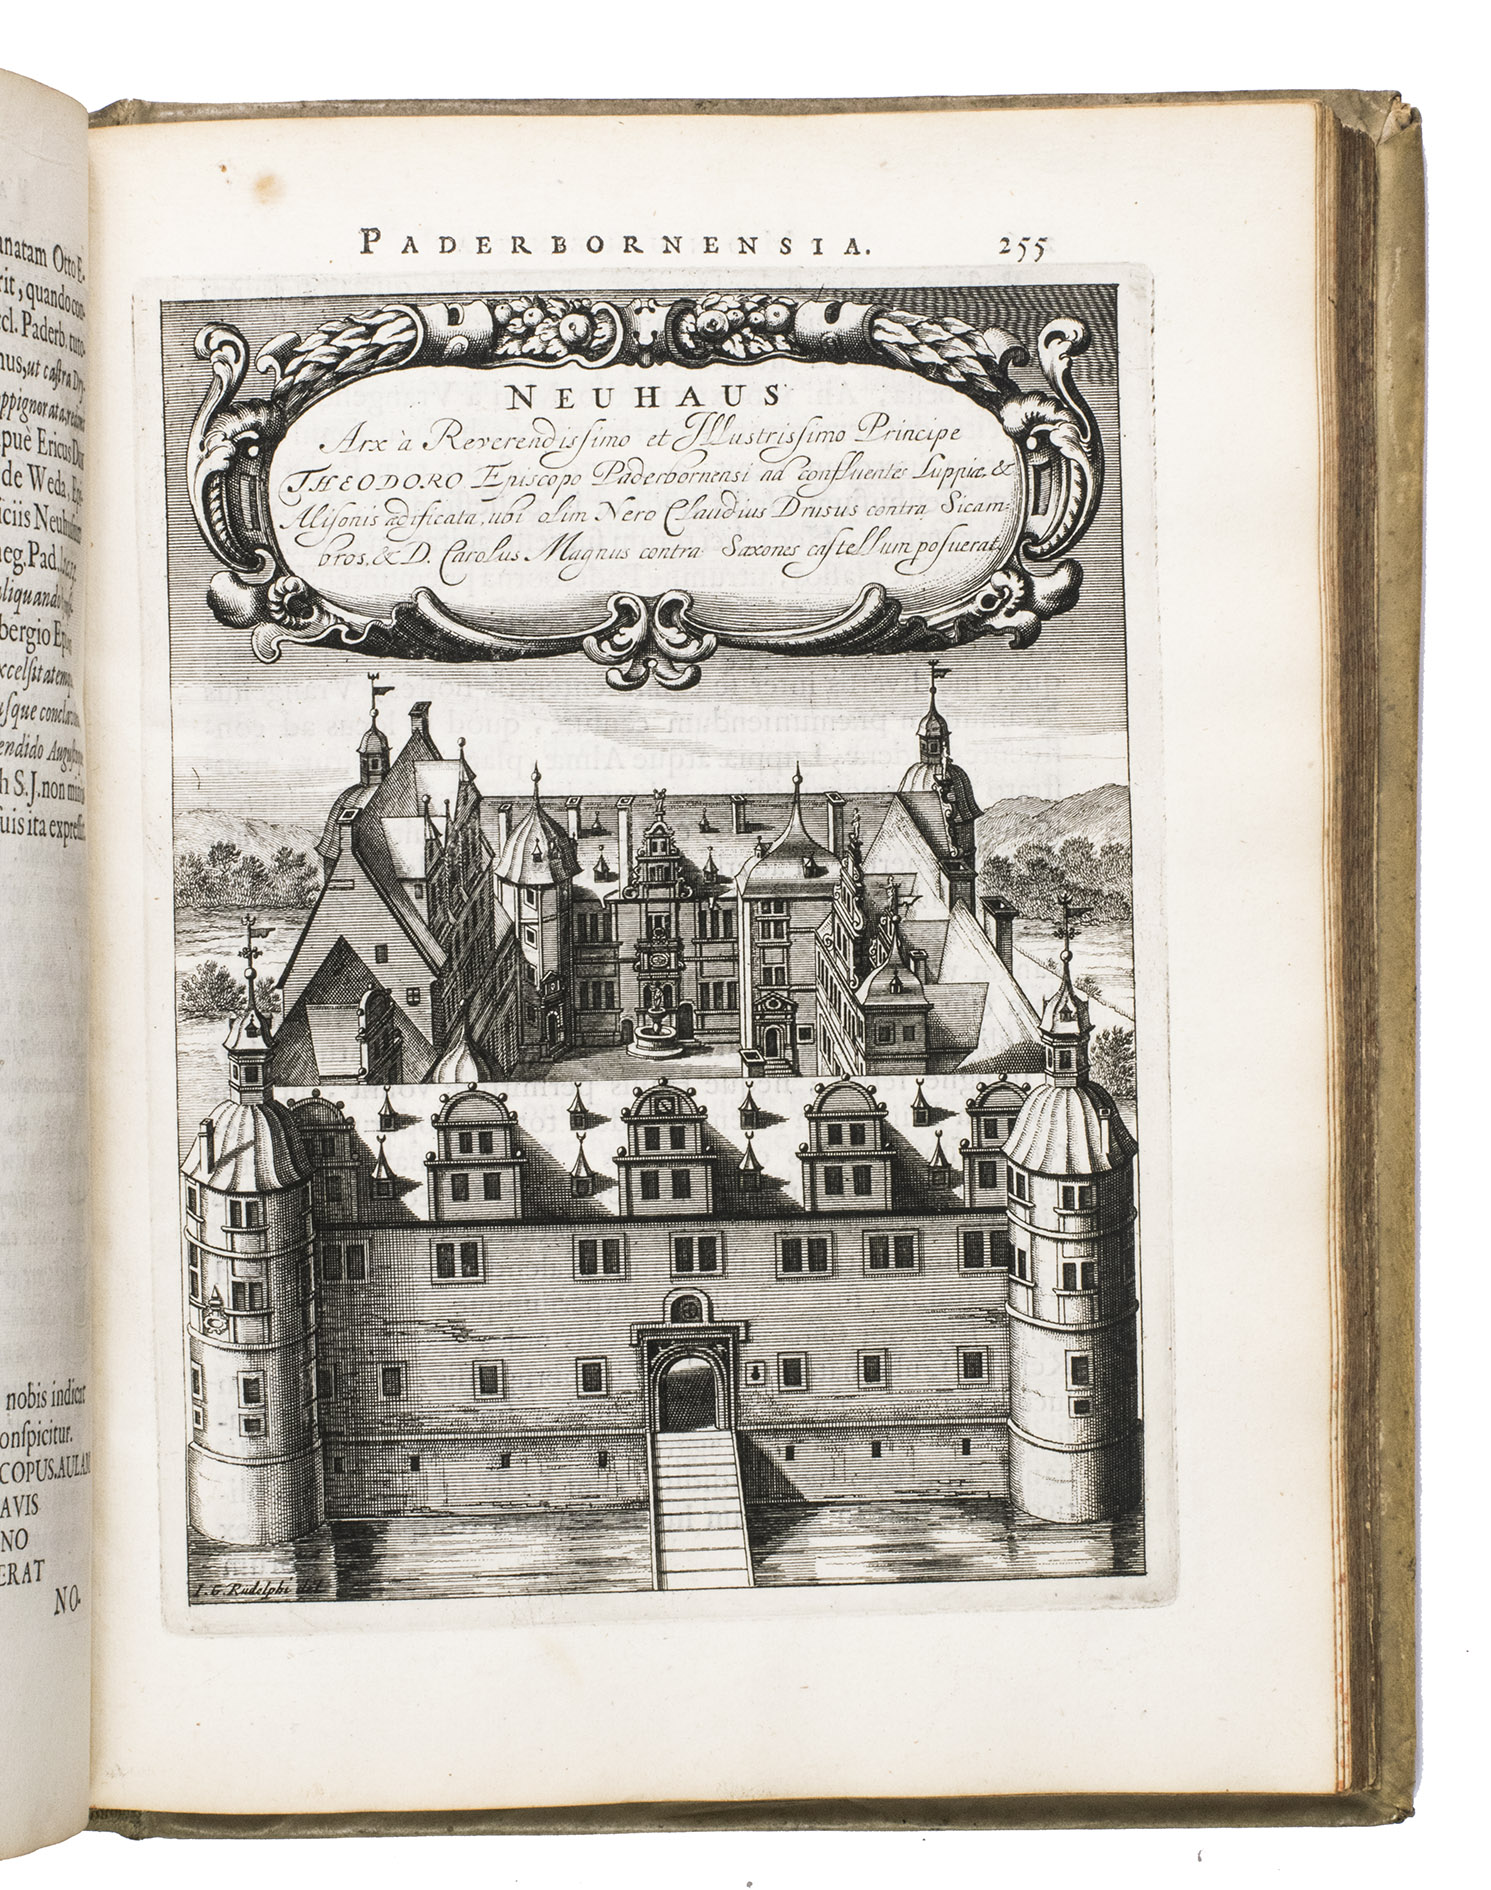 anatam Otto E-
rit, quando con-
cl. Paderb. tuto-
nus, ut castra Dry-
oppignorata, redimer
puè Ericus Dux
de Weda, Epis-
iciis Neuhusium
neg. Pad.
aliquando
bergio Episc
xcelsitatemque
usque conclavium
endido Augustoque
h S.J. non minus
suis ita expressit.
nobis indicat
onspicitur.
COPUS. AULAM
AVIS
NO
ERAT
NO-
PADERBORNENSIA. 255
NEUHAUS
Arx à Reverendissimo et Illustrissimo Principe
THEODORO Episcopo Paderbornensi ad confluentes Luppiæ, &
Alisonis ædificata, ubi olim Nero Claudius Drusus contra Sicam-
bros, & D. Carolus Magnus contra Saxones castellum posuerat.
I. G. Rudolphi del.